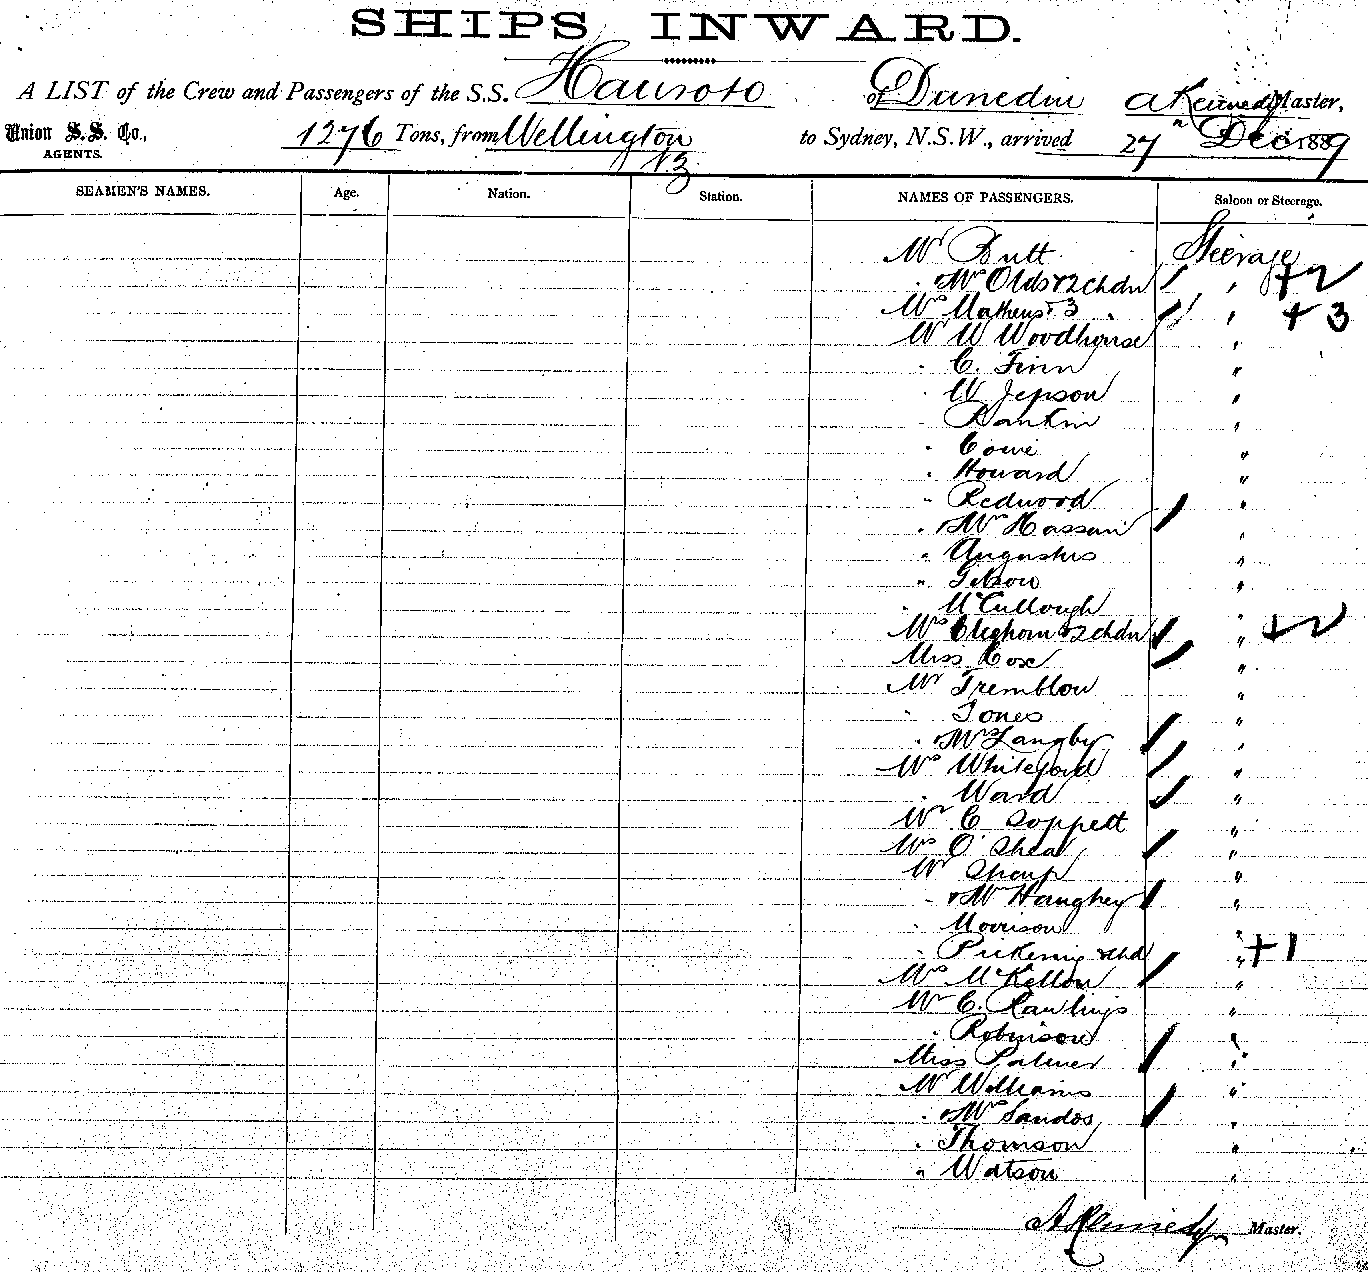 SHIPS INWARD.
A LIST of the Crew and Passengers of the S.S. Hauroto of Dunedin A Kennedy Master,
Union S.S. Co., 1276 Tons, from Wellington to Sydney, N.S.W., arrived 27th Dec 1889
AGENTS. NZ
SEAMEN'S NAMES. Age. Nation. Station. NAMES OF PASSENGERS. Saloon or Steerage.
Mr Butt Steerage
" & Mrs Olds & 2 chdn " +2
Mrs Mathews & 3 " +3
Mr W Woodhouse "
" C. Finn "
" W Jepson "
" Rankin "
" Cowie "
" Howard "
" Redwood "
" & Mrs Hassan "
" Augustus "
" Gibson "
" McCullough "
Mrs Cleghorn & 2 chdn " +2
Miss Cox "
Mr Tremblow "
" Jones "
" & Mrs Langby "
Mrs Whiteford "
" Ward "
Mr C Soppett "
Mrs O'Shea "
Mr Sharp "
" & Mrs Haughey "
" Morrison "
" Pickering & chd " +1
Mrs McKellow "
Mr C. Rawlings "
" Robinson "
Miss Palmer "
Mr Williams "
" & Mrs Sandos "
" Thomson "
" Watson "
A Kennedy Master.